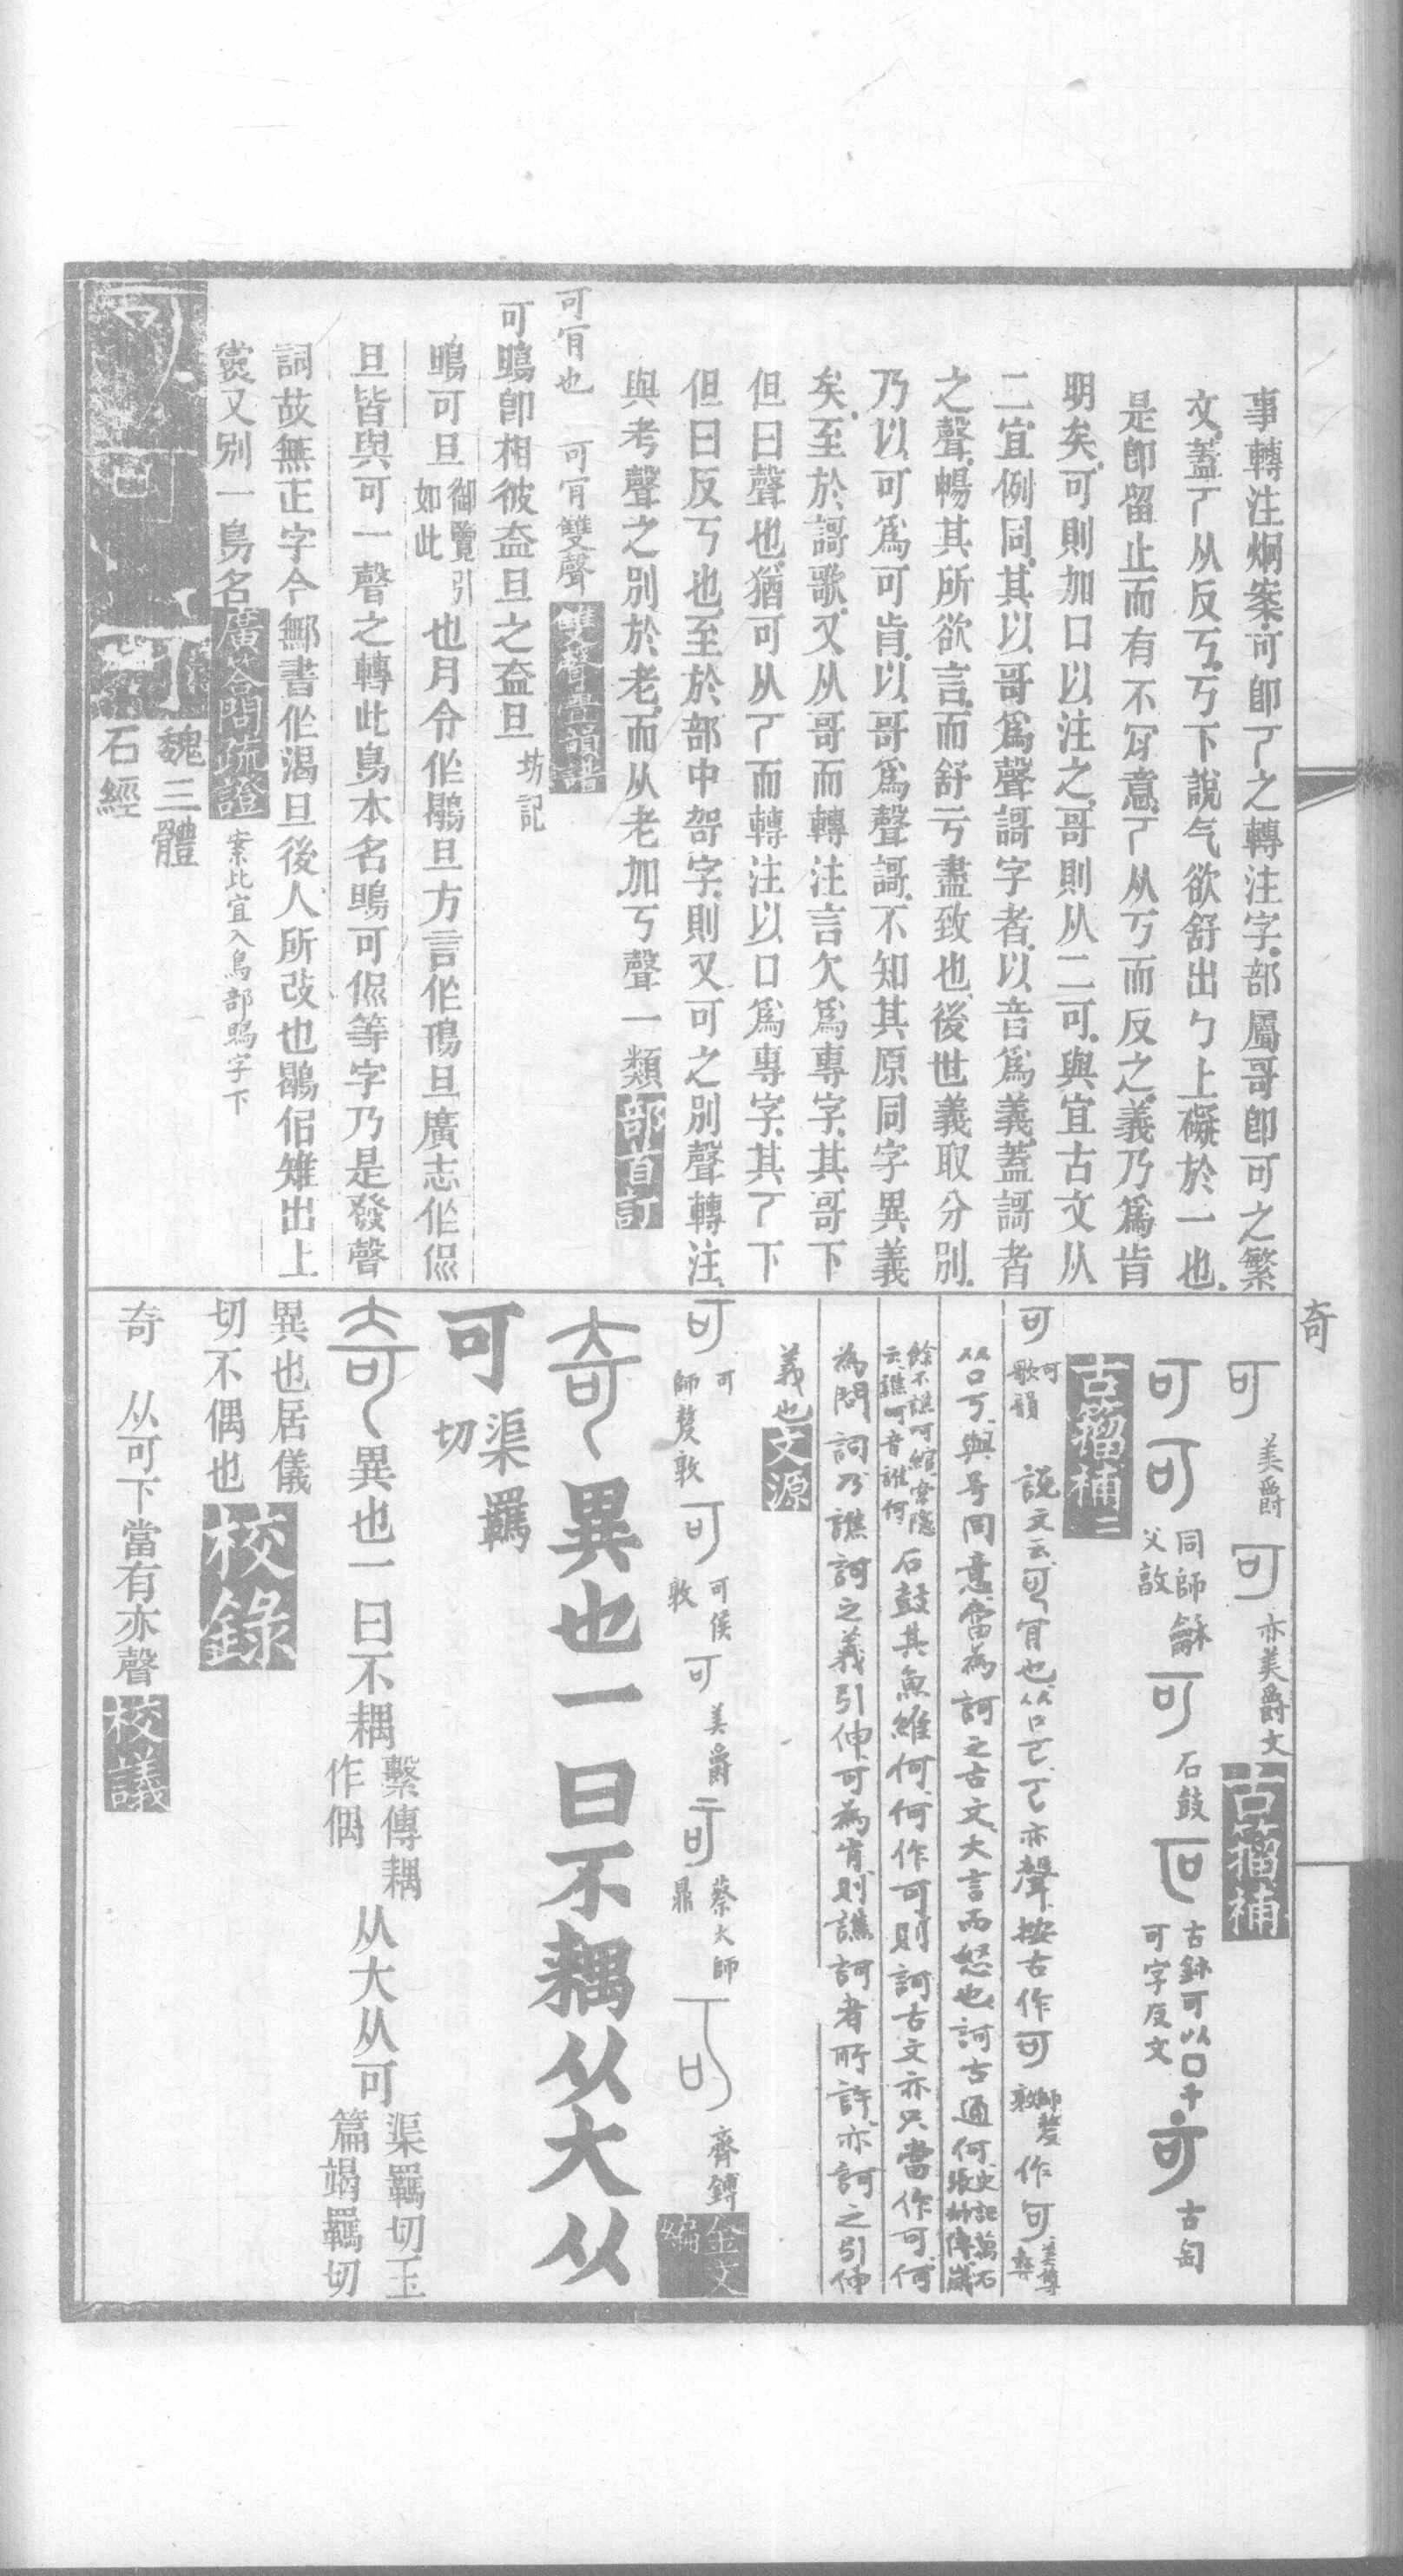 事轉注炯案可卽𠀀之轉注字部屬哥卽可之繁
文蓋𠀀从反丂丂下說气欲舒出ㄅ上礙於一也
是卽留止而有不肎意𠀀从丂而反之義乃爲肯
明矣可則加口以注之哥則从二可與宜古文从
二宜例同其以哥爲聲謌字者以音爲義蓋謌者
之聲暢其所欲言而舒亏盡致也後世義取分別
乃以可爲可肯以哥爲聲謌不知其原同字異義
矣至於謌歌又从哥而轉注言欠爲專字其哥下
但曰聲也猶可从𠀀而轉注以口爲專字其𠀀下
但曰反丂也至於部中哿字則又可之別聲轉注
與考聲之別於老而从老加丂聲一類部首訂
可肎也 可肎雙聲
可鴠卽相彼盍旦之盍旦坊記
鴠可旦御覽引如此也月令作鶡旦方言作鳱旦廣志作侃
旦皆與可一聲之轉此鳥本名鴠可侃等字乃是發聲
詞故無正字今鄦書作渴旦後人所改也鶡佀雉出上
黨又別一鳥名廣答問疏證案比宜入鳥部鴠字下
魏三體
石經
奇
可 美爵 可 亦美爵文 古籀補
可 可 同師龢父敦 可 石鼓 可 古鉢可以口千可字反文 可 古匋
古籀補二
可 可歌韻 說文云可肎也从口𠀀𠀀亦聲按古作可師嫠敦作可美尊彝
从口丂與号同意當為訶之古文大言而怒也訶古通何史記萬石張叔傳歲
餘不譙呵綰索隱云譙呵音誰何石鼓其魚維何何作可則訶古文亦只當作可何
為問詞乃譙訶之義引伸可為肯則譙訶者所許亦訶之引伸
義也文源
可 可師嫠敦 可 可侯敦 可 美爵 可 蔡大師鼎 可 齊鎛 金文編
奇 異也一曰不耦从大从
可 渠羈切
奇異也一曰不耦繫傳耦作偶从大从可渠羈切玉篇竭羈切
異也居儀
切不偶也校錄
奇 从可下當有亦聲校議